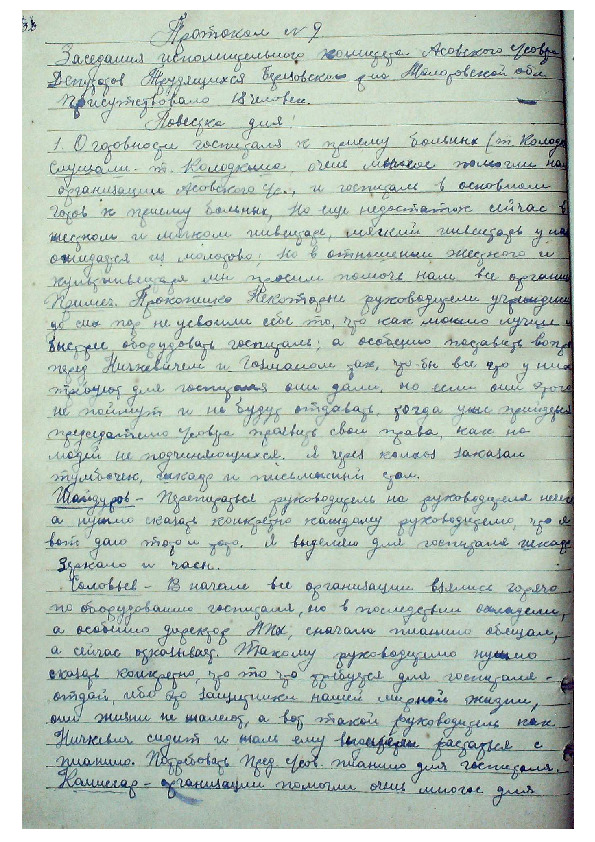 Протокол № 9
Заседания исполнительного комитета Асовского с/совета
Депутатов Трудящихся Березовского р-на Молотовской обл.
Присутствовало 18 человек.
Повестка дня:
1. О годовности госпиталя к приему больных (т. Колодк
Слушали: т. Колодкина, очень многое помогли нам
организации Асовского с/с., и госпиталь в основном
готов к приему больных, но еще недостаток сейчас в
жестком и мягком инвентаре, мягкий инвентарь у нас
ожидается из Молотова, но в отношении жесткого и
культинвентаря мы просим помочь нам все органи
Примеч. Прокопишко Некоторые руководители учреждени
до сих пор не усвоили себе то, что как можно лучше и
быстрее оборудовать госпиталь; а особенно поставить вопр
перед Ничкевичем и Гозманом так, что бы все что у них
требуют для госпиталя они дали, но если они этого
не поймут и не будут отдавать, тогда уж придется
председателю с/совета проявить свои права, как на
людей не подчиняющихся. Я через колхоз заказал
тумбочек, шкафр и письменный стол.
Шайдуров – Переписаться руководитель на руководителя нече
а нужно сказать конкретно каждому руководителю, что я
вот даю того и того. Я выделяю для госпиталя шкаф,
зеркало и часы.
Соловьев – В начале все организации взялись горячо
по оборудованию госпиталя, но в последствии охладели,
а особенно директор НКХ, сначала пианино обещал,
а сейчас отказывает. Такому руководителю нужно
сказать конкретно, что то что требуется для госпиталя –
отдай, ибо это защитники нашей мирной жизни,
они жизни не жалеют, а вот такой руководитель как
Ничкевич сидит и жаль ему расстаться с
пианино. Потребовать Пред с/сов. пианино для госпиталя.
Комиссар – организации помогли очень многое для